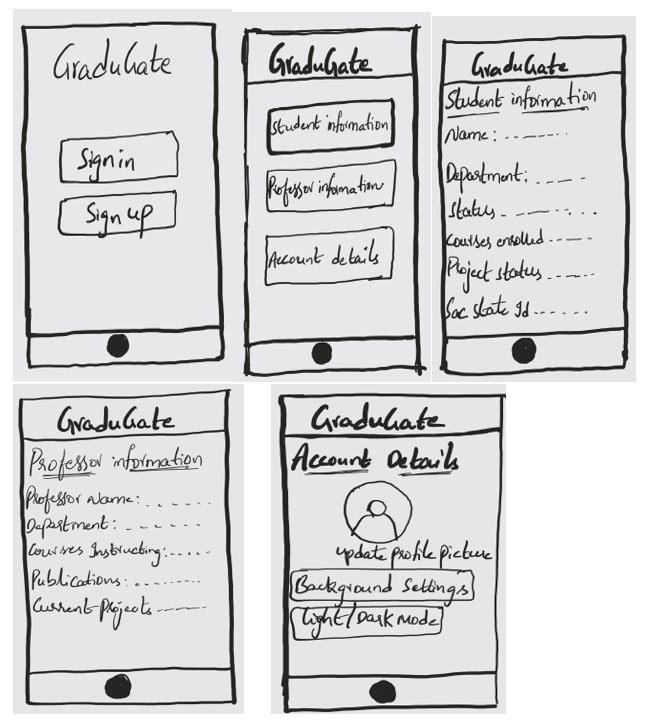 GraduGate
Sign in
Sign up
GraduGate
Student information
Professor information
Account details
GraduGate
Student information
Name: -------
Department: ----
Status - -------
Courses enrolled -----
Project status -----
Sac State Id ------
GraduGate
Professor information
Professor Name: ------
Department: ------
Courses Instructing: -----
Publications: --------
Current Projects ------
GraduGate
Account Details
update profile picture
Background Settings
Light/Dark mode